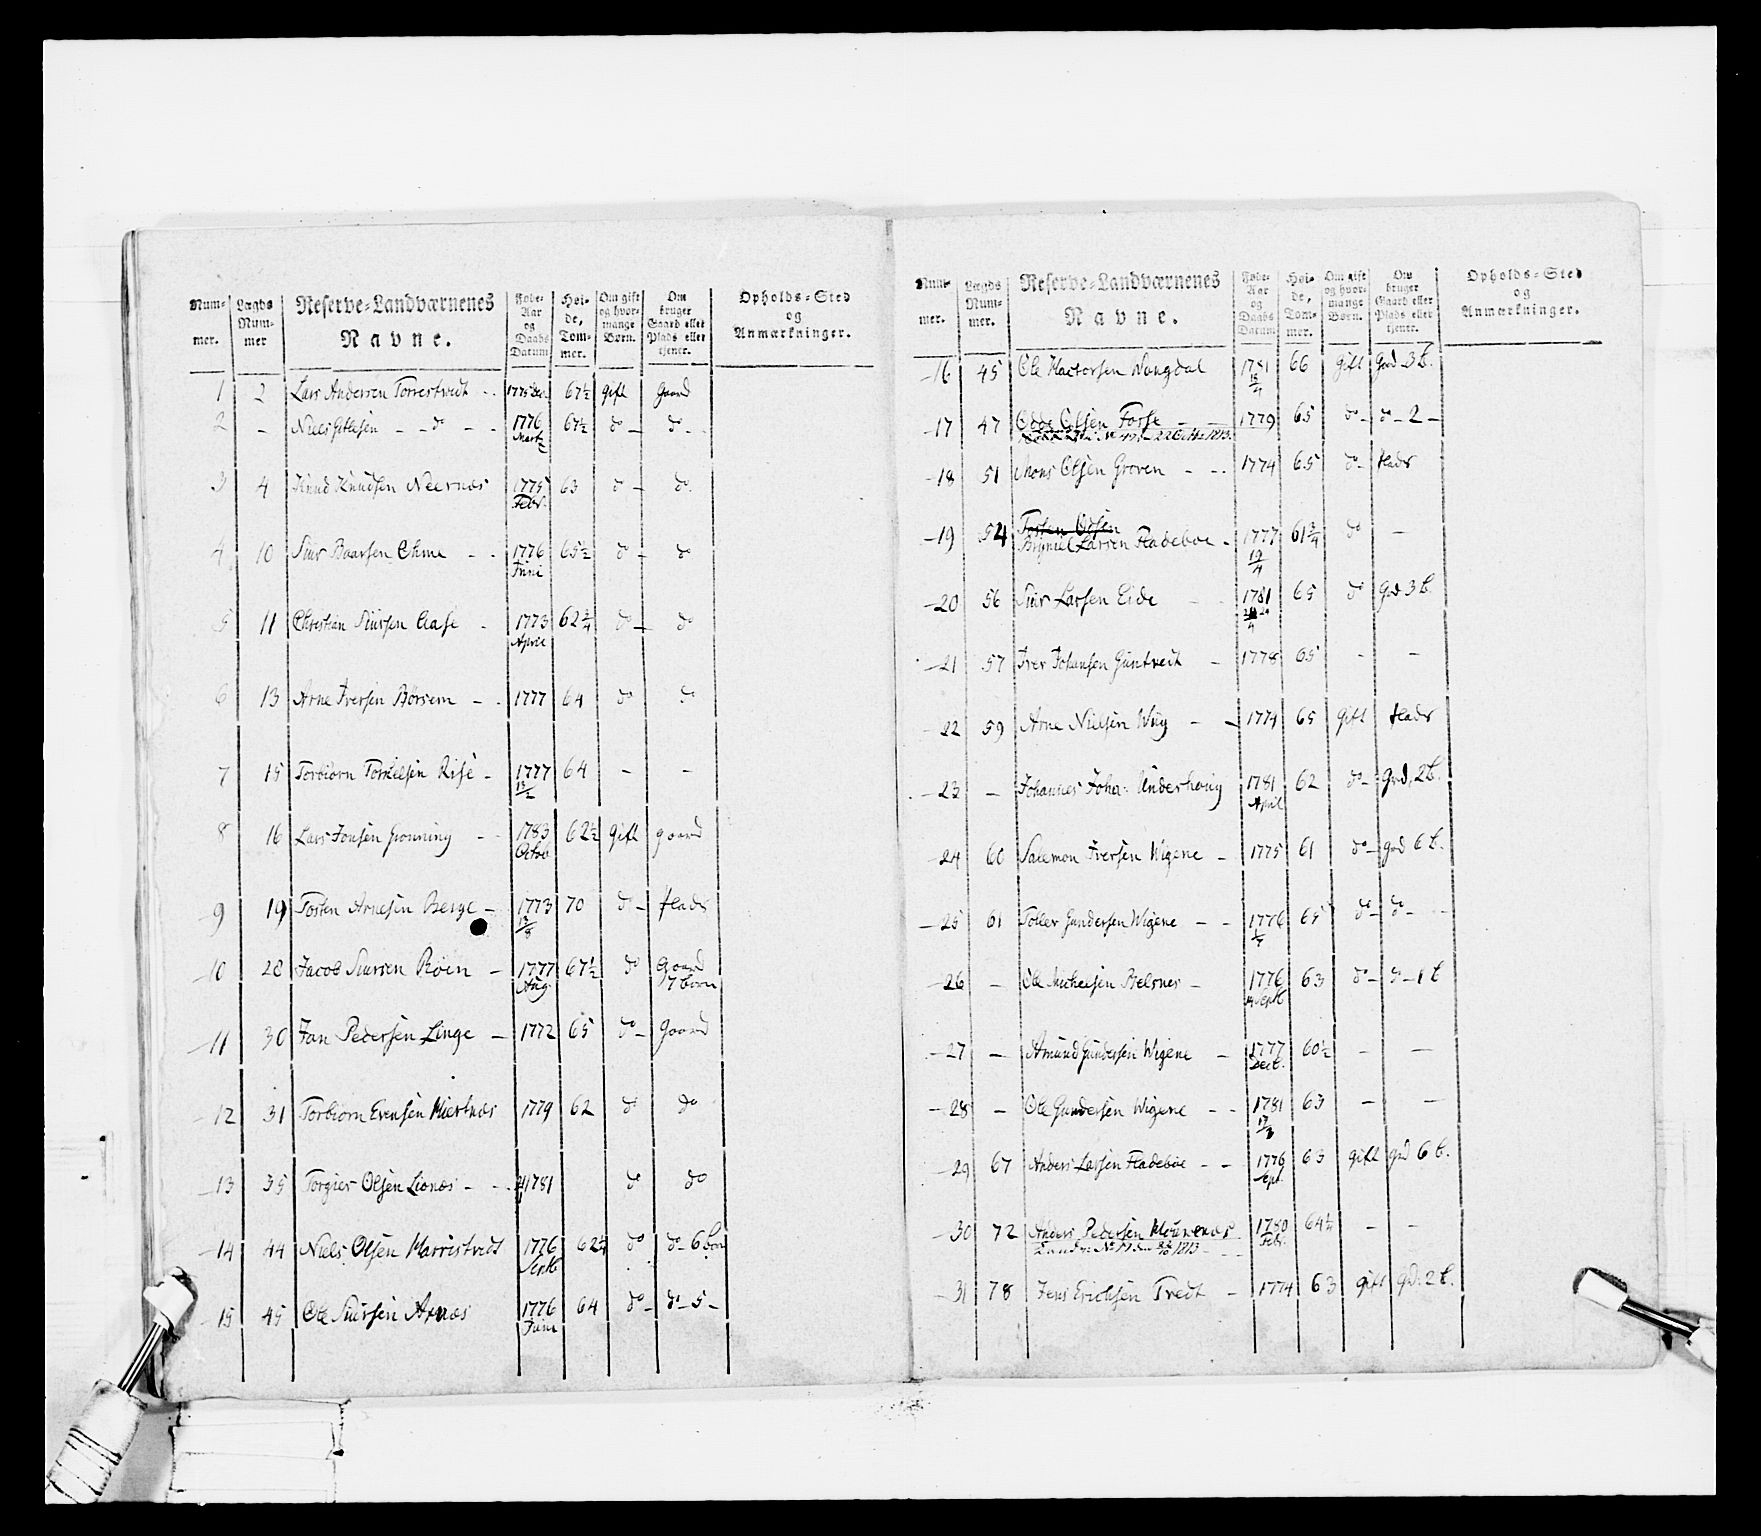 Num-mer. Lægds Num-mer Reserve-Landværnenes Navne. Føde-Aar og Daabs Datum Høi-de, Tom-mer. Om gift og hvor-mange Børn. Om bruger Gaard eller Plads eller tjener. Opholds-Sted og Anmærkninger.
1 2 Lars Andersen Torrestvedt - - 1775 Dec. 67½ gift gaard
2 - Niels Gitlesen - - do - - 1776 Martz 67½ do - do -
3 4 Knud Knudsen Neernæs 1775 Febr. 63 do - do
4 10 Siur Baarsen Ohme - - 1776 Juni 65½ do - do
5 11 Christian Siursen Aase - 1773 April 62¾ do - do
6 13 Arne Iversen Børsem - - 1777 64 do do
7 15 Torbiørn Torkielsen Rise - 1777 64 - -
8 16 Lars Jonsen Grønning - - 1783 Octob 62½ gift gaard
9 19 Tosten Arnesen Berge - 1773 13/8 70 do - Plads
10 28 Jacob Siursen Røen - 1777 Aug. 67½ do Gaard 7 børn
11 30 Jan Pedersen Linge - 1772 65 do - Gaard
12 31 Torbiørn Evensen Miertnæs 1779 62 do do
13 35 Torgier Olsen Lionæs - - 1781 do do
14 44 Niels Olsen Marristvedt 1776 Septb 62¼ do do - 6 børn
15 45 Ole Siursen Arnæs 1776 Juni 64 do - do - 5 -
Num-mer. Lægds Num-mer. Reserve-Landværnenes Navne. Føde-Aar og Daabs Datum Høi-de, Tom-mer. Om gift og hvor-mange Børn. Om bruger Gaard eller Plads eller tjener. Opholds-Sted og Anmærkninger.
16 45 Ole Wangdal 1781 66 gift Grd 3 b.
17 47 Odde Olsen Fosse - - 1779 65 do - do - 2 -
1813.
18 51 Mons Olsen Groven - - - 1774 65 do - Plads
19 54 Tosten Odsen
Brynild Larsen Fladebøe - 1777 19/4 61¾ do -
20 56 Siur Larsen Eide - - 1781 65 do Grd 3 b.
21 57 Iver Johansen Guntvedt - 1778 65 - -
22 59 Arne Nielsen Wiig - - 1774 65 gift Plads
23 - Johannes Joha: Underhaug 1781 April 62 do - Grd. 2 b.
24 60 Salemon Iversen Wigene - 1775 61 do - grd 6 b.
25 61 Toller Gundersen Wigene - - 1776 65 do - do -
26 - Ole Michelsen Belsnes - 1776 Septb 63 do - do - 1 b
27 - Amund Gundersen Wigene - 1777 Decb. 60½ - -
28 - Ole Gundersen Wigene - - 1781 63 - -
29 67 Anders Larsen Fladebøe - - 1776 Sept 63 gift grd 6 b.
30 72 Anders Pedersen 1780 Febr. 64¼ - -
1813
31 78 Jens Erichsen Tvedt - 1774 63 gift grd. 2 b.